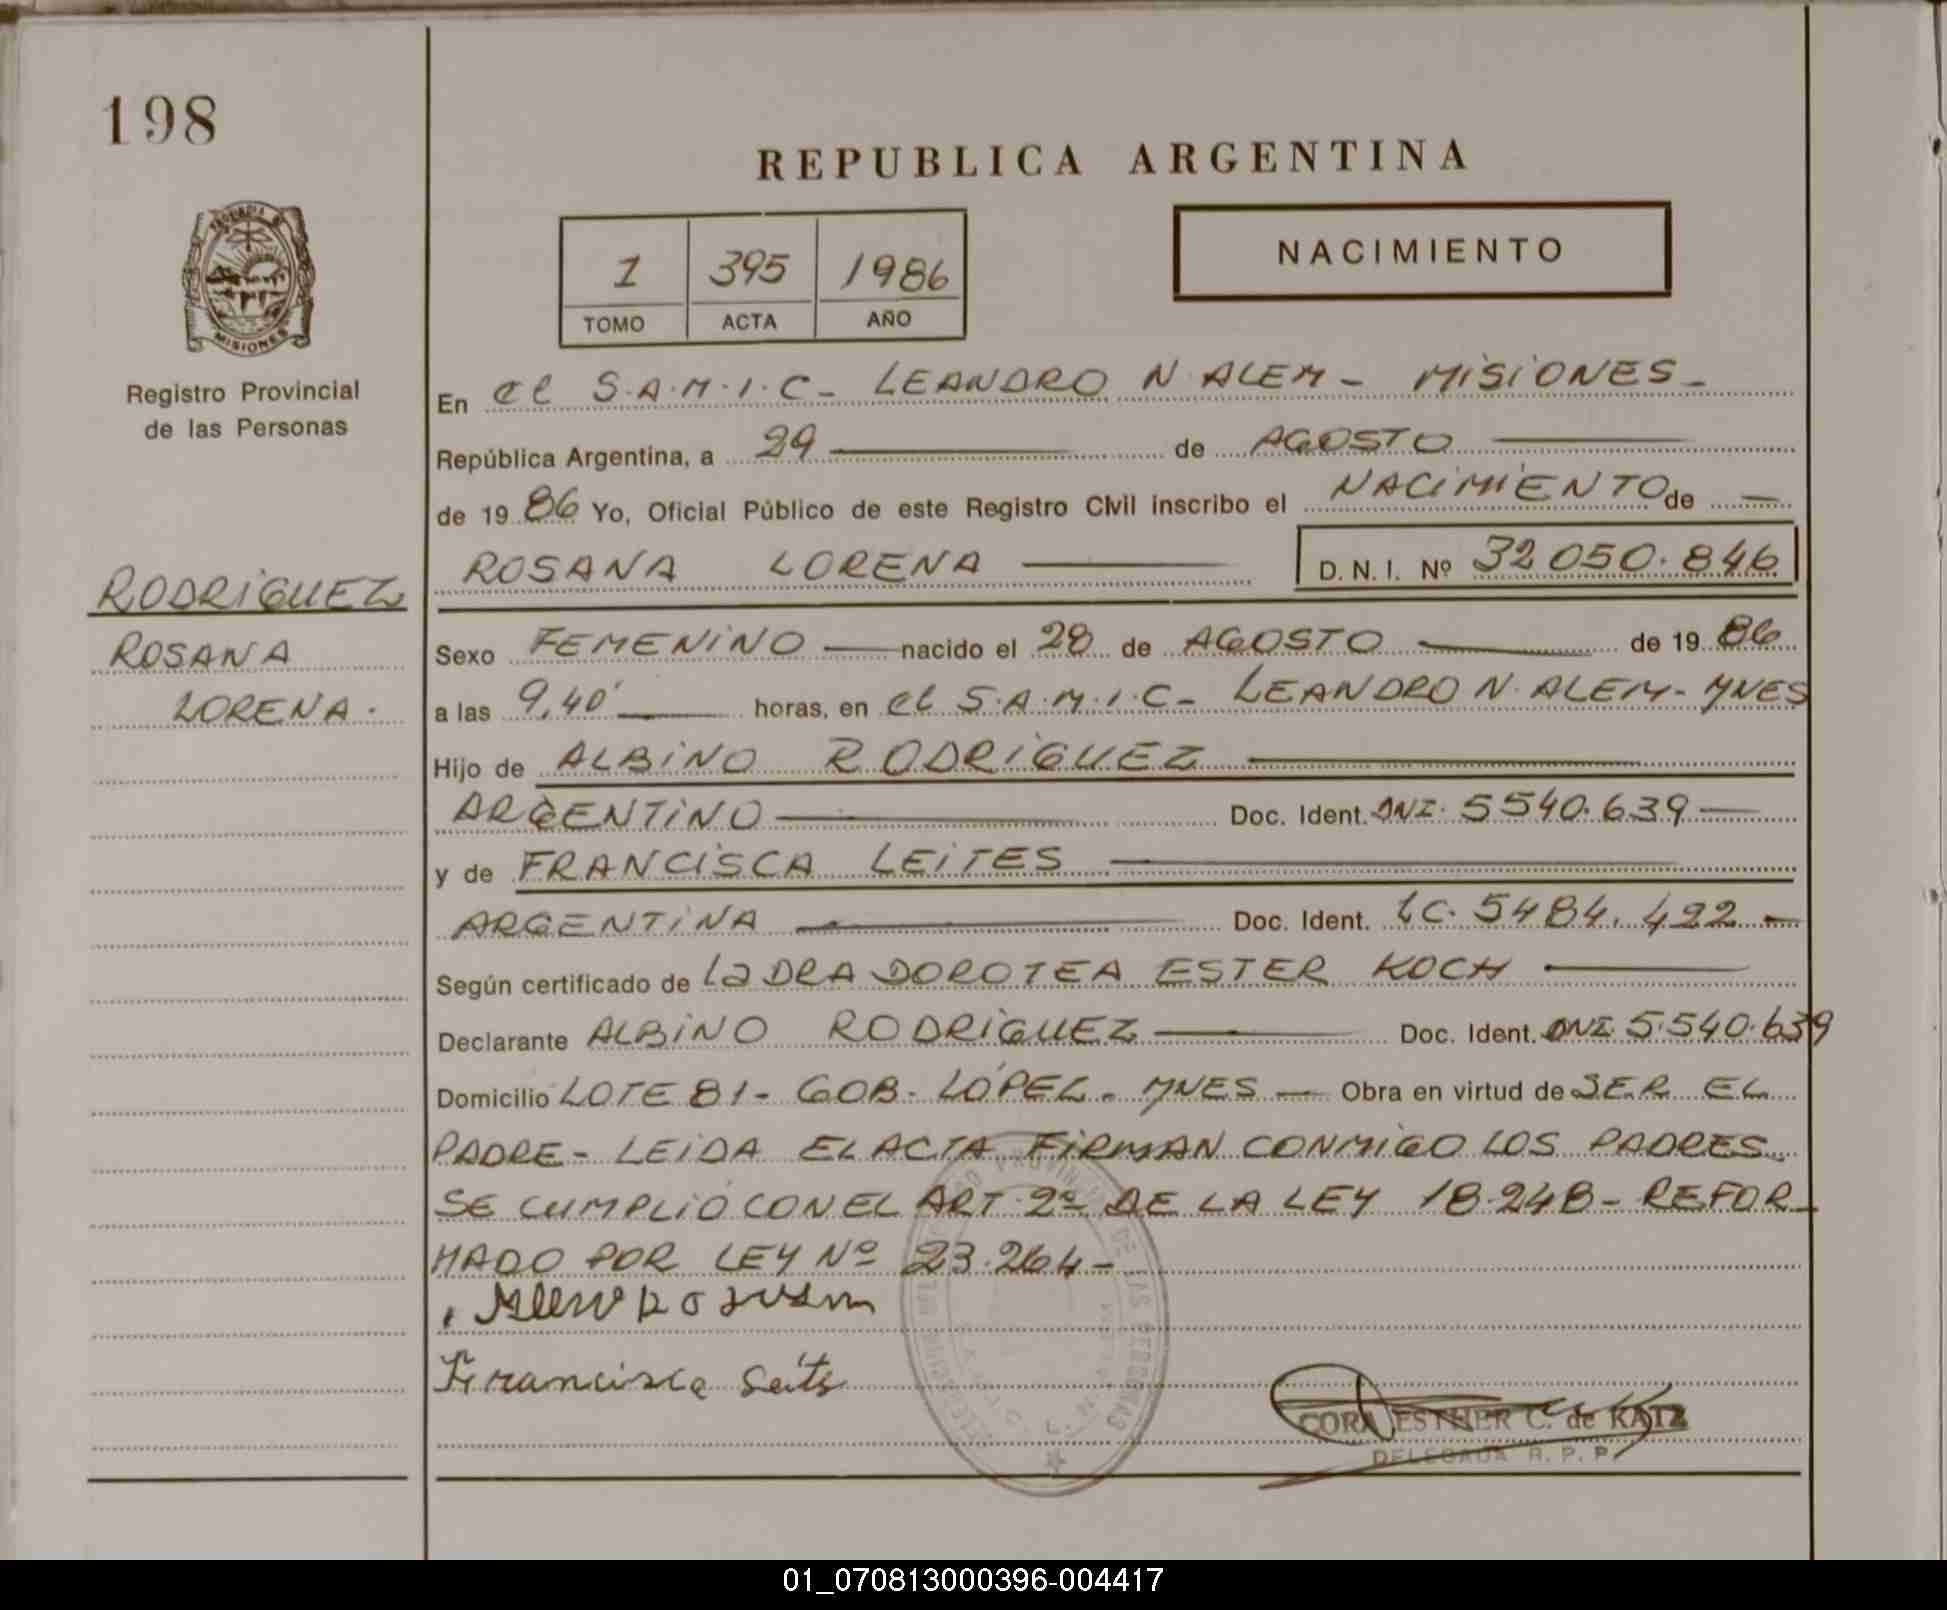 198
REPUBLICA ARGENTINA
NACIMIENTO
1 395 1986
TOMO ACTA AÑO
MISIONES
Registro Provincial
de las Personas
En el S.A.M.I.C- LEANDRO N. ALEM - MISIONES -
República Argentina, a 29 de AGOSTO
de 1986 Yo, Oficial Público de este Registro Civil inscribo el NACIMIENTO de —
ROSANA LORENA D.N.I. Nº 32050.846
RODRIGUEZ
ROSANA
LORENA.
Sexo FEMENINO nacido el 28 de AGOSTO de 1986
a las 9,40' horas, en el S.A.M.I.C- LEANDRO N. ALEM- MNES
Hijo de ALBINO RODRIGUEZ
ARGENTINO Doc. Ident. DNI. 5540.639 —
y de FRANCISCA LEITES
ARGENTINA Doc. Ident. LC. 5484.422 —
Según certificado de La DRA DOROTEA ESTER KOCH
Declarante ALBINO RODRIGUEZ Doc. Ident. DNI. 5.540.639
Domicilio LOTE 81- GOB. LÓPEZ - MNES — Obra en virtud de SER EL
PADRE - LEIDA EL ACTA FIRMAN CONMIGO LOS PADRES
SE CUMPLIÓ CON EL ART. 2º DE LA LEY 18.248 - REFOR-
MADO POR LEY Nº 23.264 -
Francisca Leits
CORA ESTHER C. de KATZ
DELEGADA R. P. P.
01_070813000396-004417